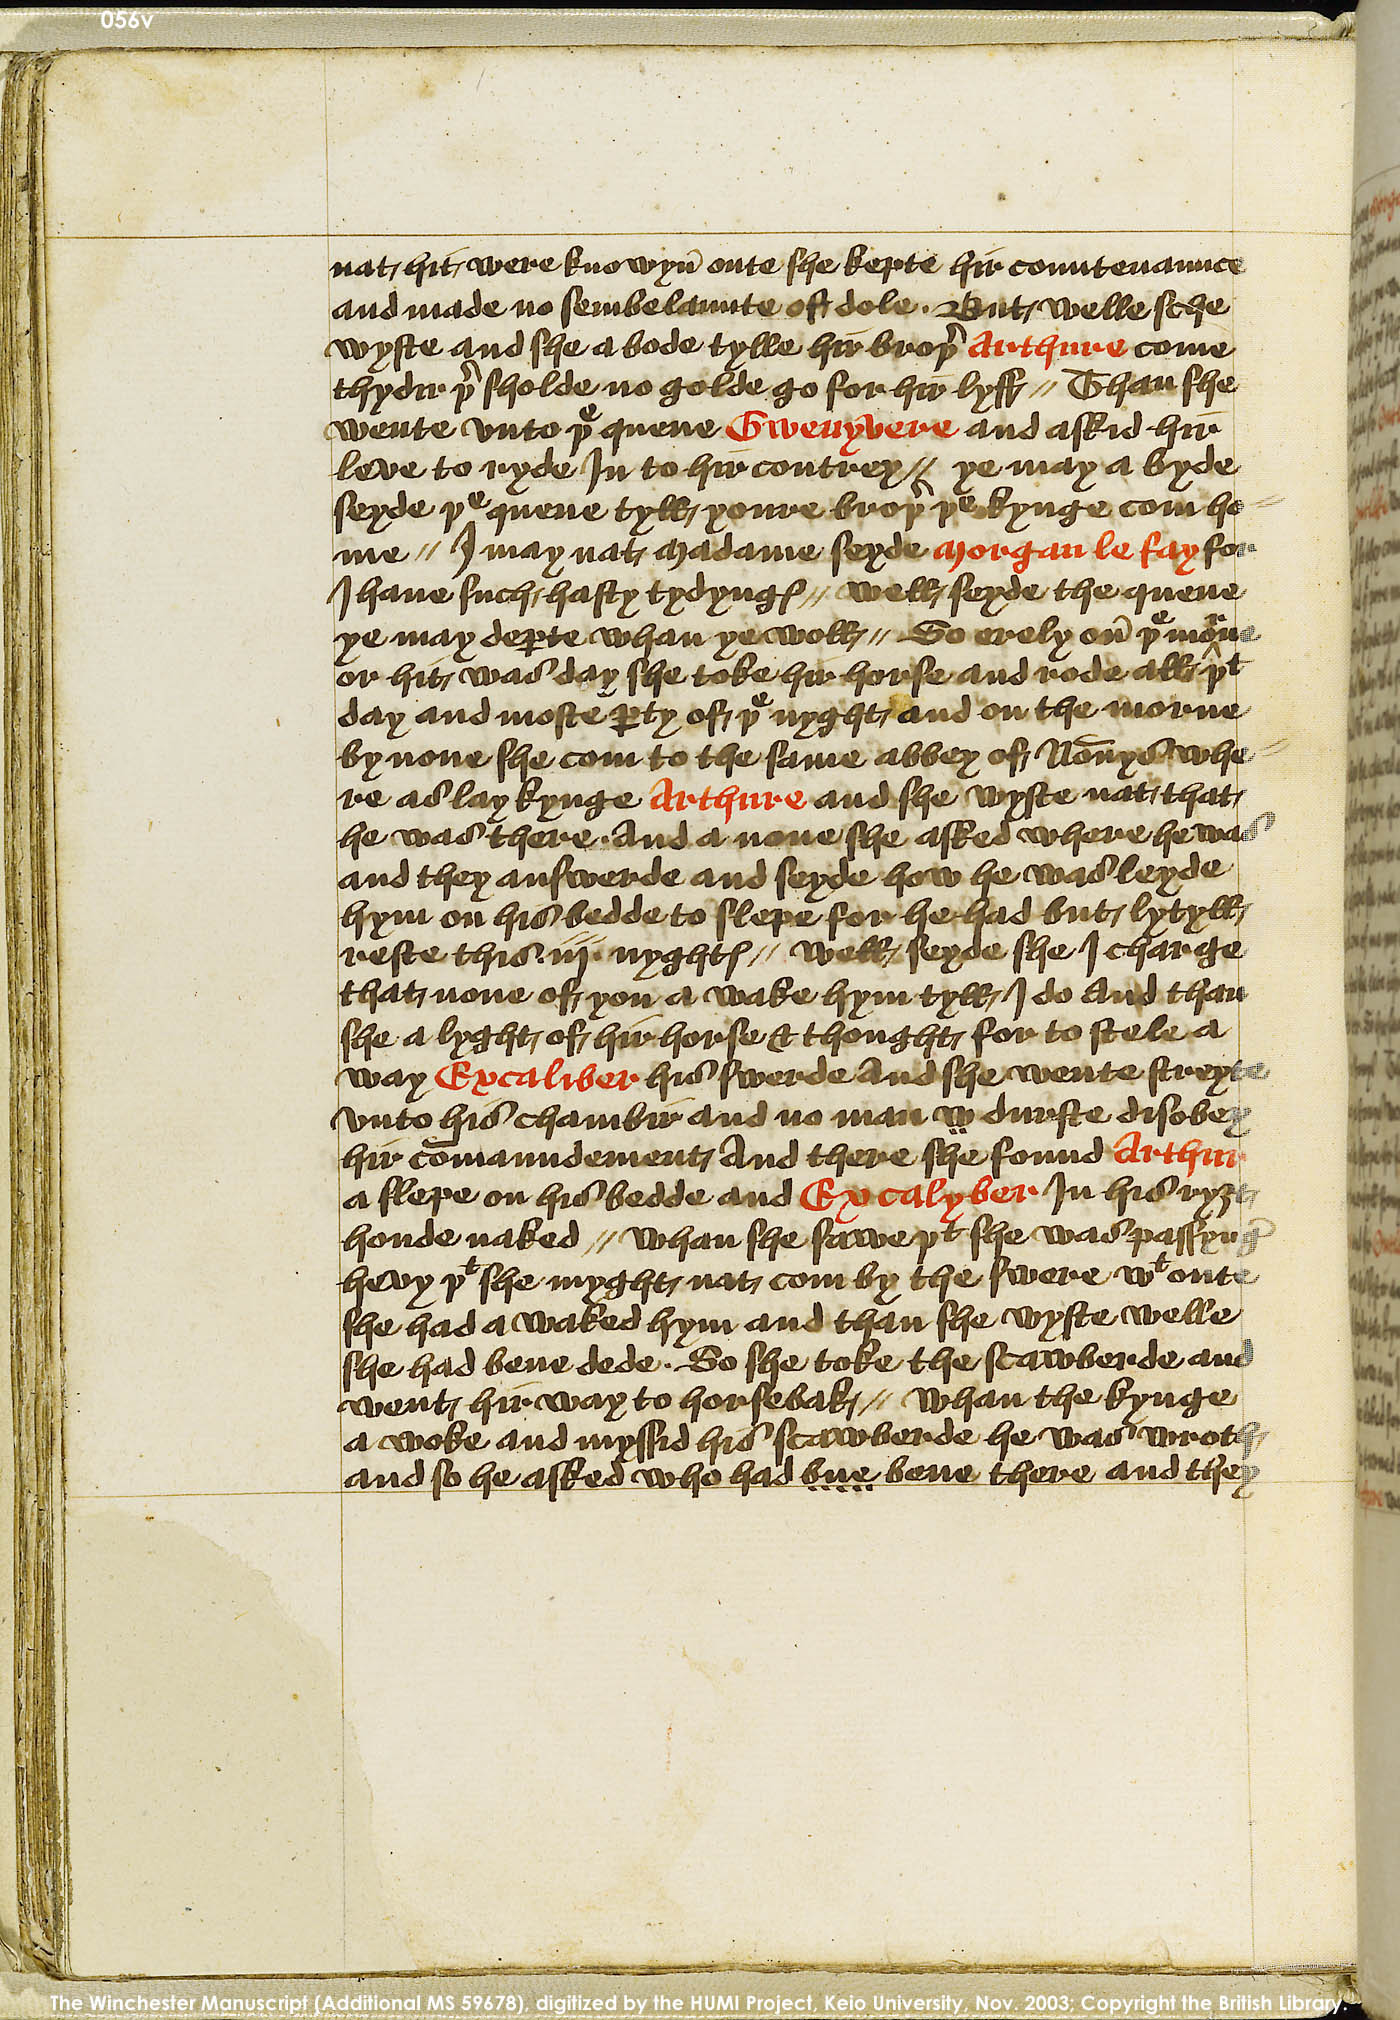 056v
nat hit were knowyn̄ oute she kepte hir countenaunce
and made no sembelaunte of dole . But welle sche
wyste and she a bode tylle hir broþ̛ Arthure come
thydir þ̛ sholde no golde go for hir lyff // Than she
wente vnto þᵉ quene Gwenyvere and askid hir
leve to ryde In to hir contrey // ye may a byde
seyde þᵉ quene tyll youre broþ̛ þᵉ kynge com ho //
me // I may nat madame seyde morgan le fay for
I haue such hasty tydyngꝭ // well seyde the quene
ye may deꝑte whan ye woll // So erely on̄ þᵉ morne
or hit was day she toke hir horse and rode all þᵗ
day and moste ꝑty of þᵉ nyght and on the morne
by none she com to the same abbey of Non̄ys whe //
re as lay kynge Arthure and she wyste nat that
he was there . And a none she asked where he was
and they answerde and seyde how he was leyde
hym on his bedde to slepe for he had but lytyll
reste this .iij. nyghtꝭ // well seyde she I charge
that none of you a wake hym tyll I do And than
she a lyght of hir horse & thought for to stele a
way Excaliber his swerde And she wente streyte
vnto his chambir and no man w durste disobey
hir com̄aundement And there she found Arthur
a slepe on his bedde and Excalyber In his ryȝt
honde naked // whan she sawe þᵗ she was passynḡ
hevy þᵗ she myght nat com by the swere wᵗ oute
she had a waked hym and than she wyste welle
she had bene dede . So she toke the scawberde and
went hir way to horsebak // whan the kynge
a woke and myssid his scawberde he was wroth
and so he asked who had bue bene there and they
The Winchester Manuscript (Additional MS 59678), digitized by the HUMI Project, Keio University, Nov. 2003; Copyright the British Library.